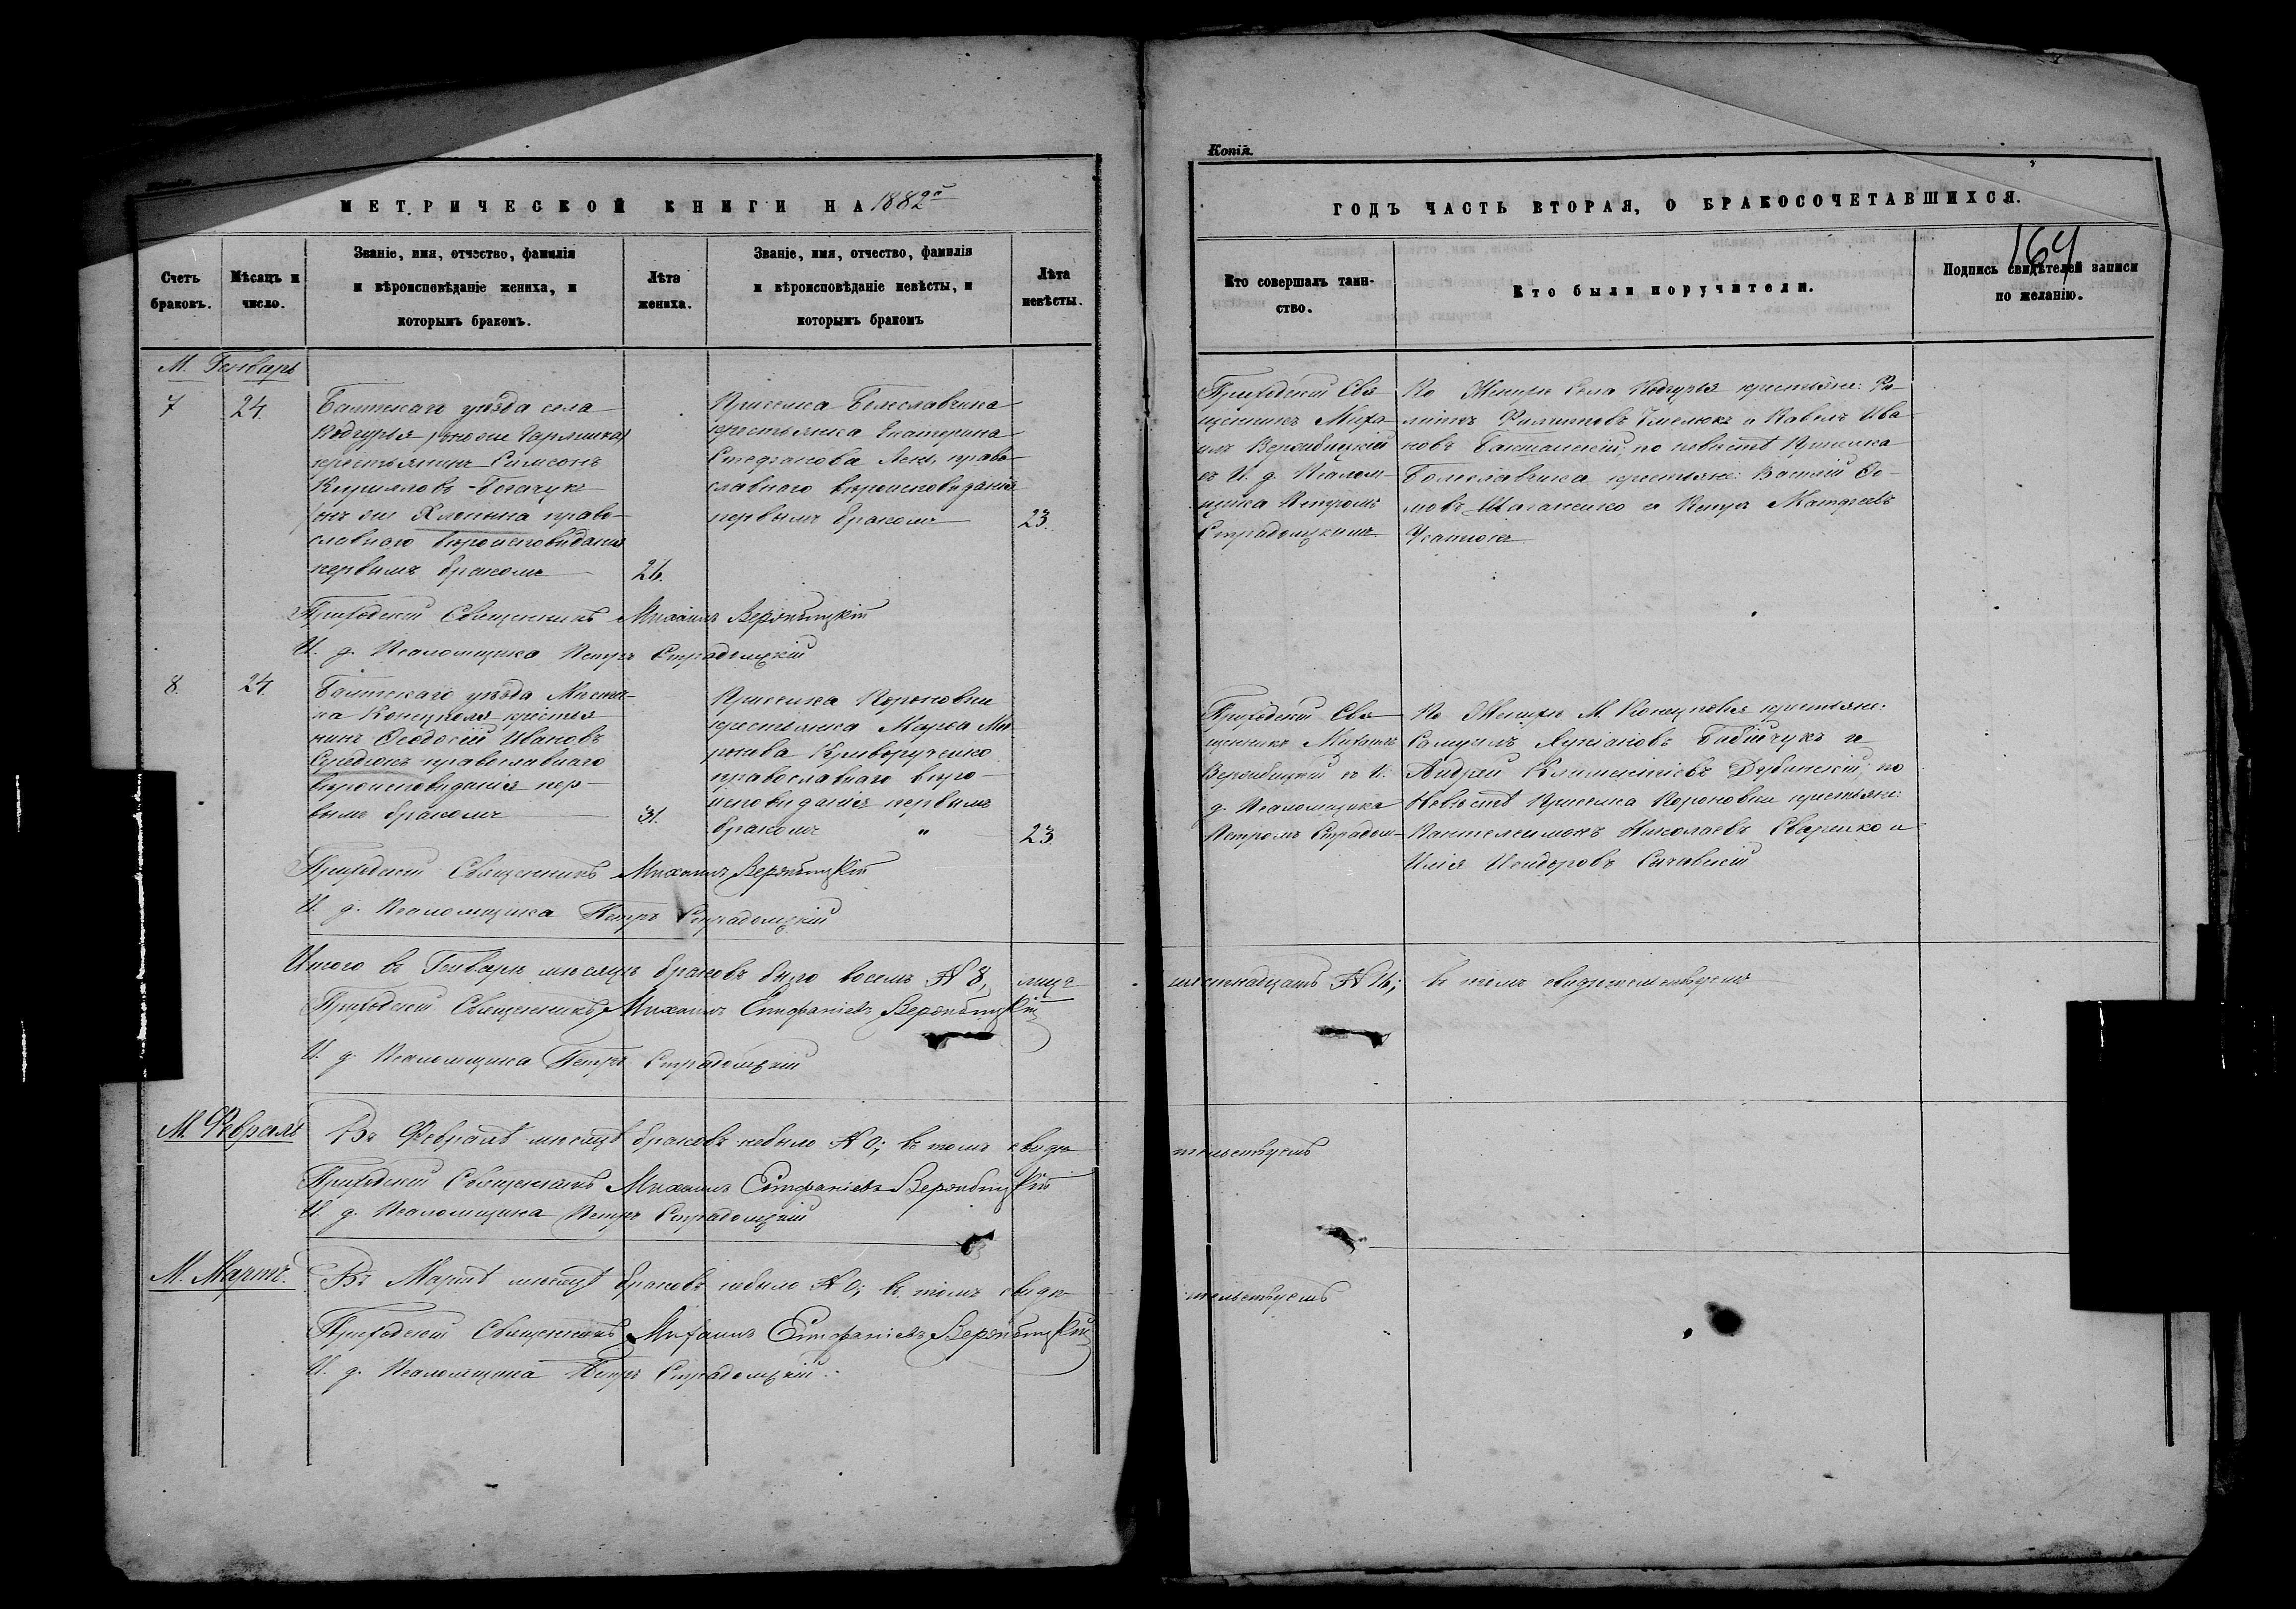 Копія.
МЕТРИЧЕСКОЙ КНИГИ НА 1882й
ГОДЪ ЧАСТЬ ВТОРАЯ, О БРАКОСОЧЕТАВШИХСЯ.
164
Счетъ браковъ.
Мѣсяцъ и число.
Званіе, имя, отчество, фамилія
и вѣроисповѣданіе жениха, и
которымъ бракомъ.
Лѣта жениха.
Званіе, имя, отчество, фамилія
и вѣроисповѣданіе невѣсты, и
которымъ бракомъ
Лѣта невѣсты.
Кто совершалъ таин-
ство.
Кто были поручители.
Подпись свидѣтелей записи
по желанію.
М. Генварь
7
24.
Балтскаго уѣзда села
крестьянинъ Симеонъ
Кирилловъ
православнаго вѣроисповѣданія
первымъ бракомъ
26.
крестьянка Екатерина
Стефанова право-
славнаго вѣроисповѣданія
первымъ бракомъ
23.
Приходскій Свя-
щенникъ Миха-
илъ Вержбицкій
съ И. д. Псалом-
щика Петромъ
Страдомскимъ.
По Женихѣ села крестьяне: Фи-
липъ Филиповъ и Павелъ Ива-
новъ по невѣстѣ
крестьяне: Василій
и Петръ Матфеевъ
Приходскій Священникъ Михаилъ Вержбицкій
И. д. Псаломщика Петръ Страдомскій
8.
24.
Балтскаго уѣзда Мѣстеч-
ка Конецполя крестья
нинъ Ѳеодосій Ивановъ
православнаго
вѣроисповѣданія пер-
вымъ бракомъ
31.
крестьянка Марѳа Ми
ронова Криворученко
православнаго вѣро-
исповѣданія первымъ
бракомъ "
23.
Приходскій Свя-
щенникъ Михаилъ
Вержбицкій съ И.
д. Псаломщика
Петромъ Страдом-
По Женихѣ М. Конецполя крестьяне:
Самуилъ Бабійчукъ и
Андрей Климентіевъ Дубинскій; по
Невѣстѣ крестьяне:
Пантелеимонъ Николаевъ и
Илія Исидоровъ
Приходскій Священникъ Михаилъ Вержбицкій
И. д. Псаломщика Петръ Страдомскій
Итого въ Генварѣ мѣсяцѣ браковъ было восемь № 8, лицъ
шестнадцать № 16; въ томъ свидѣтельствуемъ
Приходскій Священникъ Михаилъ Епифаніевъ Вержбицкій
И. д. Псаломщика Петръ Страдомскій
М. Февраль
Въ Февралѣ мѣсяцѣ браковъ небыло № 0; въ томъ свидѣ-
тельствуемъ
Приходскій Священникъ Михаилъ Епифаніевъ Вержбицкій
И. д. Псаломщика Петръ Страдомскій
М. Мартъ.
Въ Мартѣ мѣсяцѣ браковъ небыло № 0; въ томъ свидѣ-
тельствуемъ
Приходскій Священникъ Михаилъ Епифаніевъ Вержбицкій
И. д. Псаломщика Петръ Страдомскій